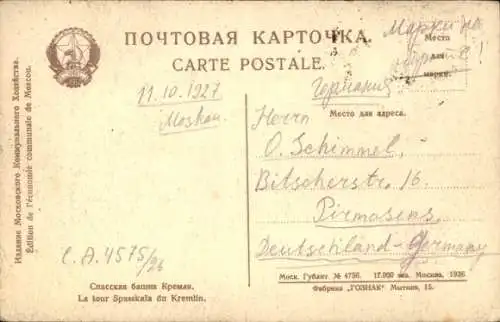 ПОЧТОВАЯ КАРТОЧКА.
CARTE POSTALE.
Марки на
Место
для
марки.
Германия
Место для адреса.
11.10.1927
Moskau.
Herrn
O. Schimmel,
Bitscherstr. 16
Pirmasens,
Deutschland-Germany
C.A.4575/26
Издание Московского Коммунального Хозяйства.
Édition de l'économie communale de Moscou.
Спасская башня Кремля.
La tour Spasskaïa du Kremlin.
Моск. Гублит. № 4756. 17.000 экз. Москва, 1926
Фабрика "ГОЗНАК" Мытная, 15.